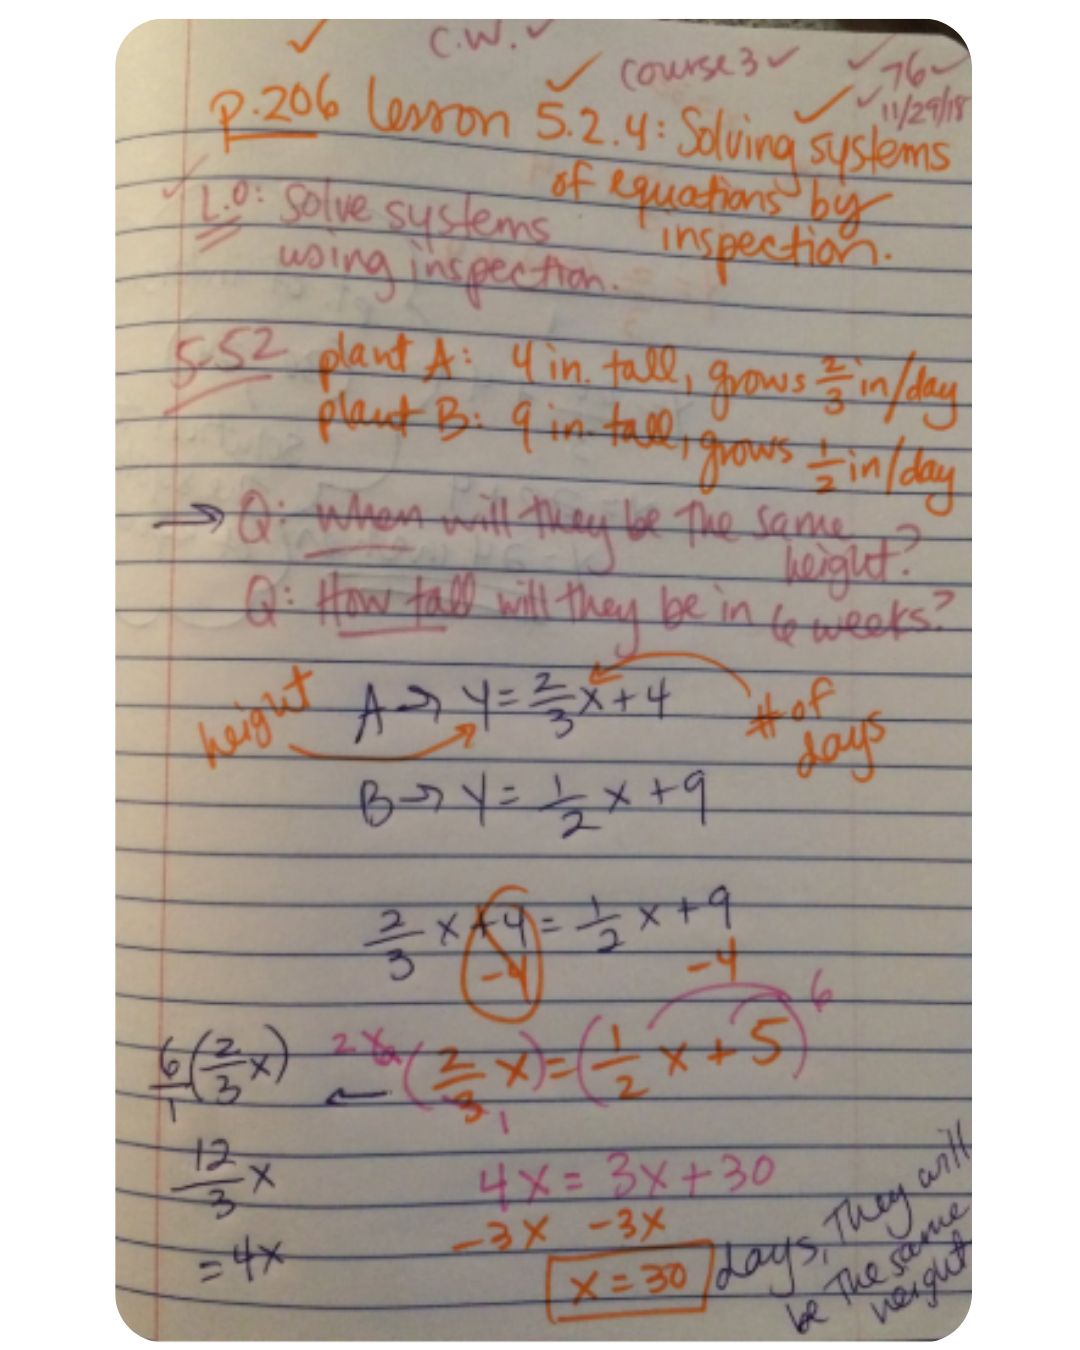 C.W.
course 3
76
11/29/18
p.206 Lesson 5.2.4: Solving systems
of equations by
inspection.
L.O: Solve systems
using inspection.
5-52 plant A: 4 in. tall, grows 2/3 in/day
plant B: 9 in. tall, grows 1/2 in/day
→ Q: When will they be the same
height?
Q: How tall will they be in 6 weeks?
height A → y = 2/3 x + 4 # of
days
B → y = 1/2 x + 9
2/3 x + 4 = 1/2 x + 9
-4 -4
6/1 (2/3 x) ← 2 6 (2/3 x) = (1/2 x + 5) 6
1
12/3 x 4x = 3x + 30
-3x -3x
= 4x x = 30 days, They will
be the same
height